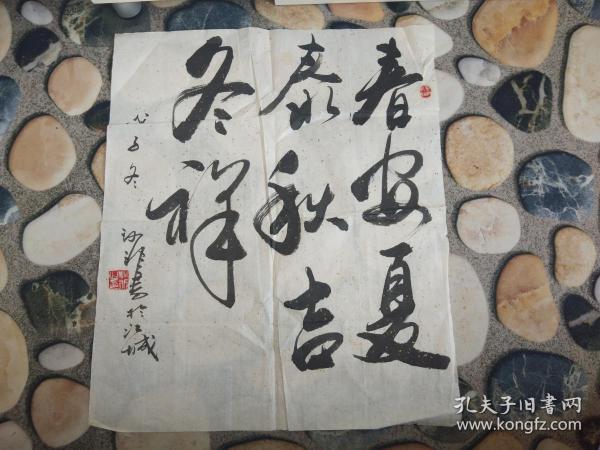 春安夏
泰秋吉
冬祥
戊子冬
书于江城
孔夫子旧书网
www.kongfz.com